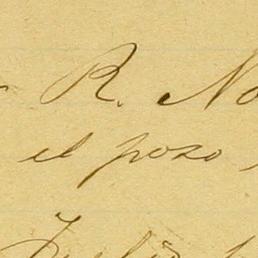 R. No
el poso